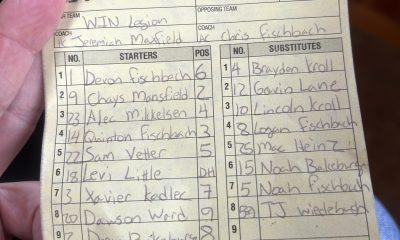 OPPOSING TEAM
WIN Legion
COACH
Jeremiah Maxfield AC Chris Fischbach
NO. STARTERS POS NO. SUBSTITUTES
1 1 Devon Fischbach 6 1 4 Brayden Kroll
2 9 Chays Mansfield 2 2 12 Gavin Lane
3 23 Alec Mikkelsen 4 3 10 Lincoln Kroll
4 14 Quinton Fischbach 3 4 8 Logan Fischbach
5 22 Sam Vetter 5 5 25 Mac Heinz
6 18 Levi Little DH 6 15 Noah
7 3 Xavier Kadlec 7 7 5 Noah Fischbach
8 20 Dawson Word 9 8 TJ
9 8 9